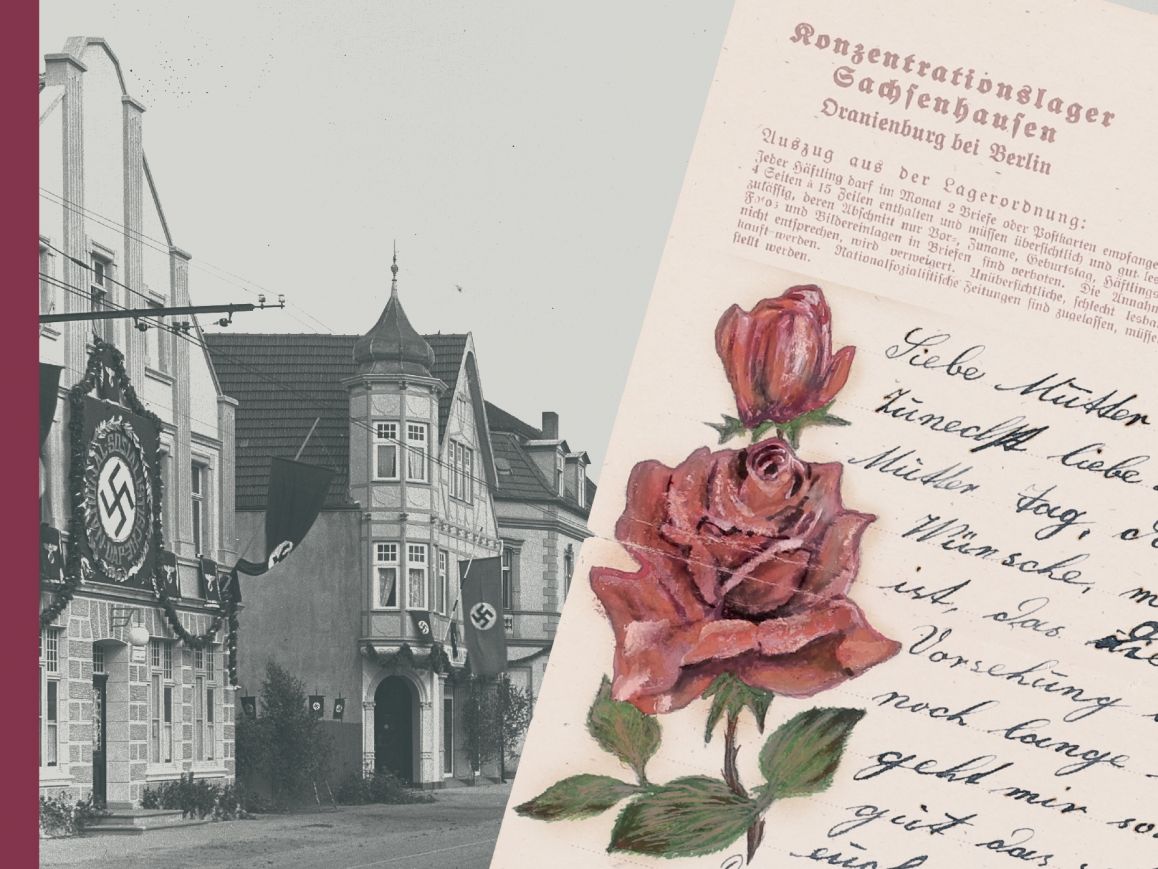 Konzentrationslager
Sachsenhausen
Oranienburg bei Berlin
Auszug aus der Lagerordnung:
Jeder Häftling darf im Monat 2 Briefe oder Postkarten empfange
4 Seiten à 15 Zeilen enthalten und müssen übersichtlich und gut les
zulässig, deren Abschnitt nur Vor-, Zuname, Geburtstag, Häftlings
und Bildereinlagen in Briefen sind verboten. Die Annahm
nicht entsprechen, wird verweigert. Unübersichtliche, schlecht lesba
kauft werden. Nationalsozialistische Zeitungen sind zugelassen, müsse
stellt werden.
Liebe Mutter
Zunechst liebe
Mutter tag,
Wünsche, m
ist, das die
Vorsehung
noch lange
geht mir so
gut das
euch